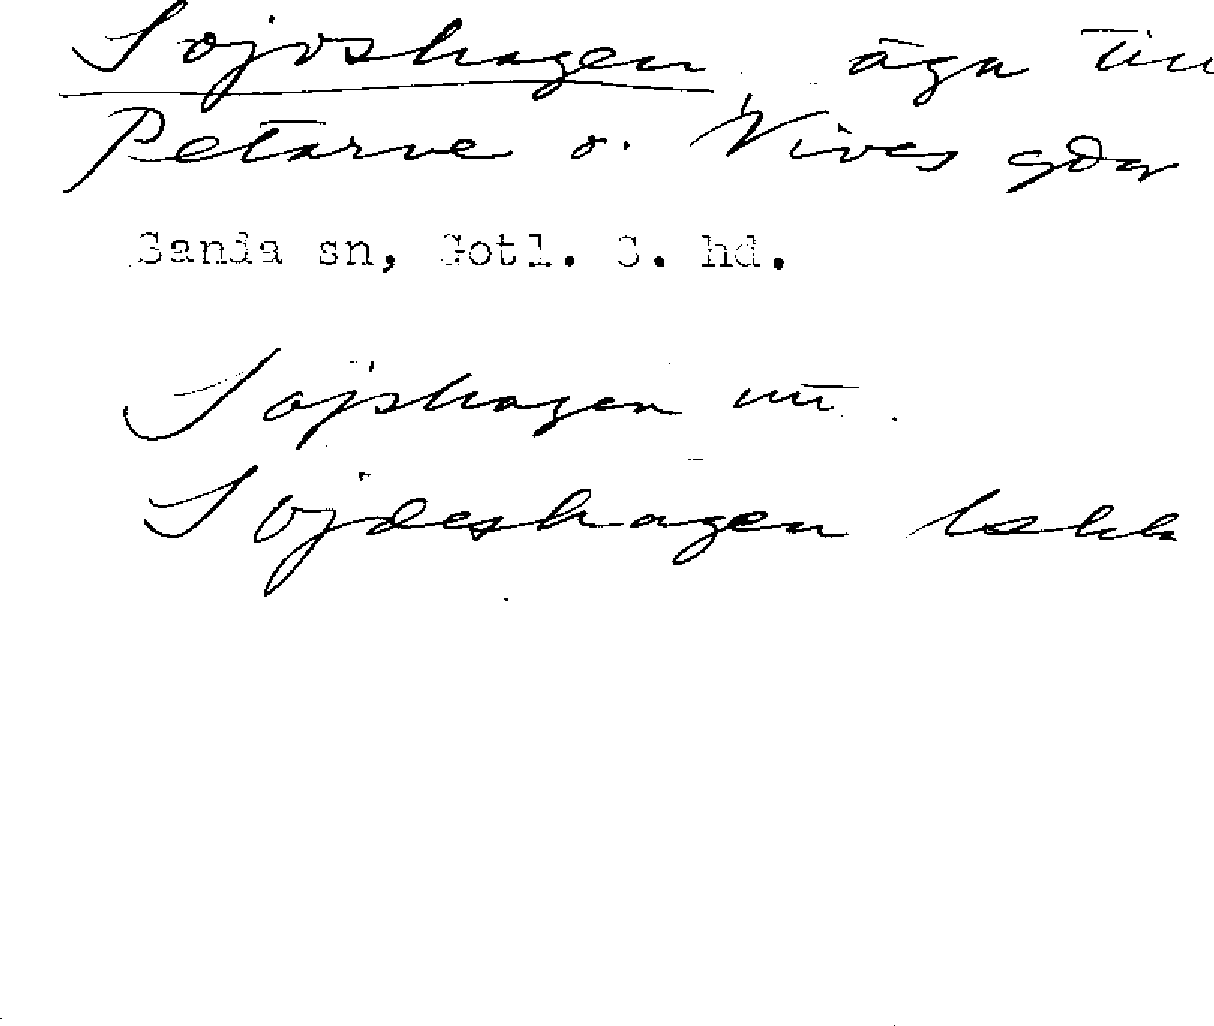 Sojvshagen, äga till
Petarve o. Vives gdar
Sanda sn, Gotl. S. hd.
Sojshagen utt.
Sojdeshagen lskk